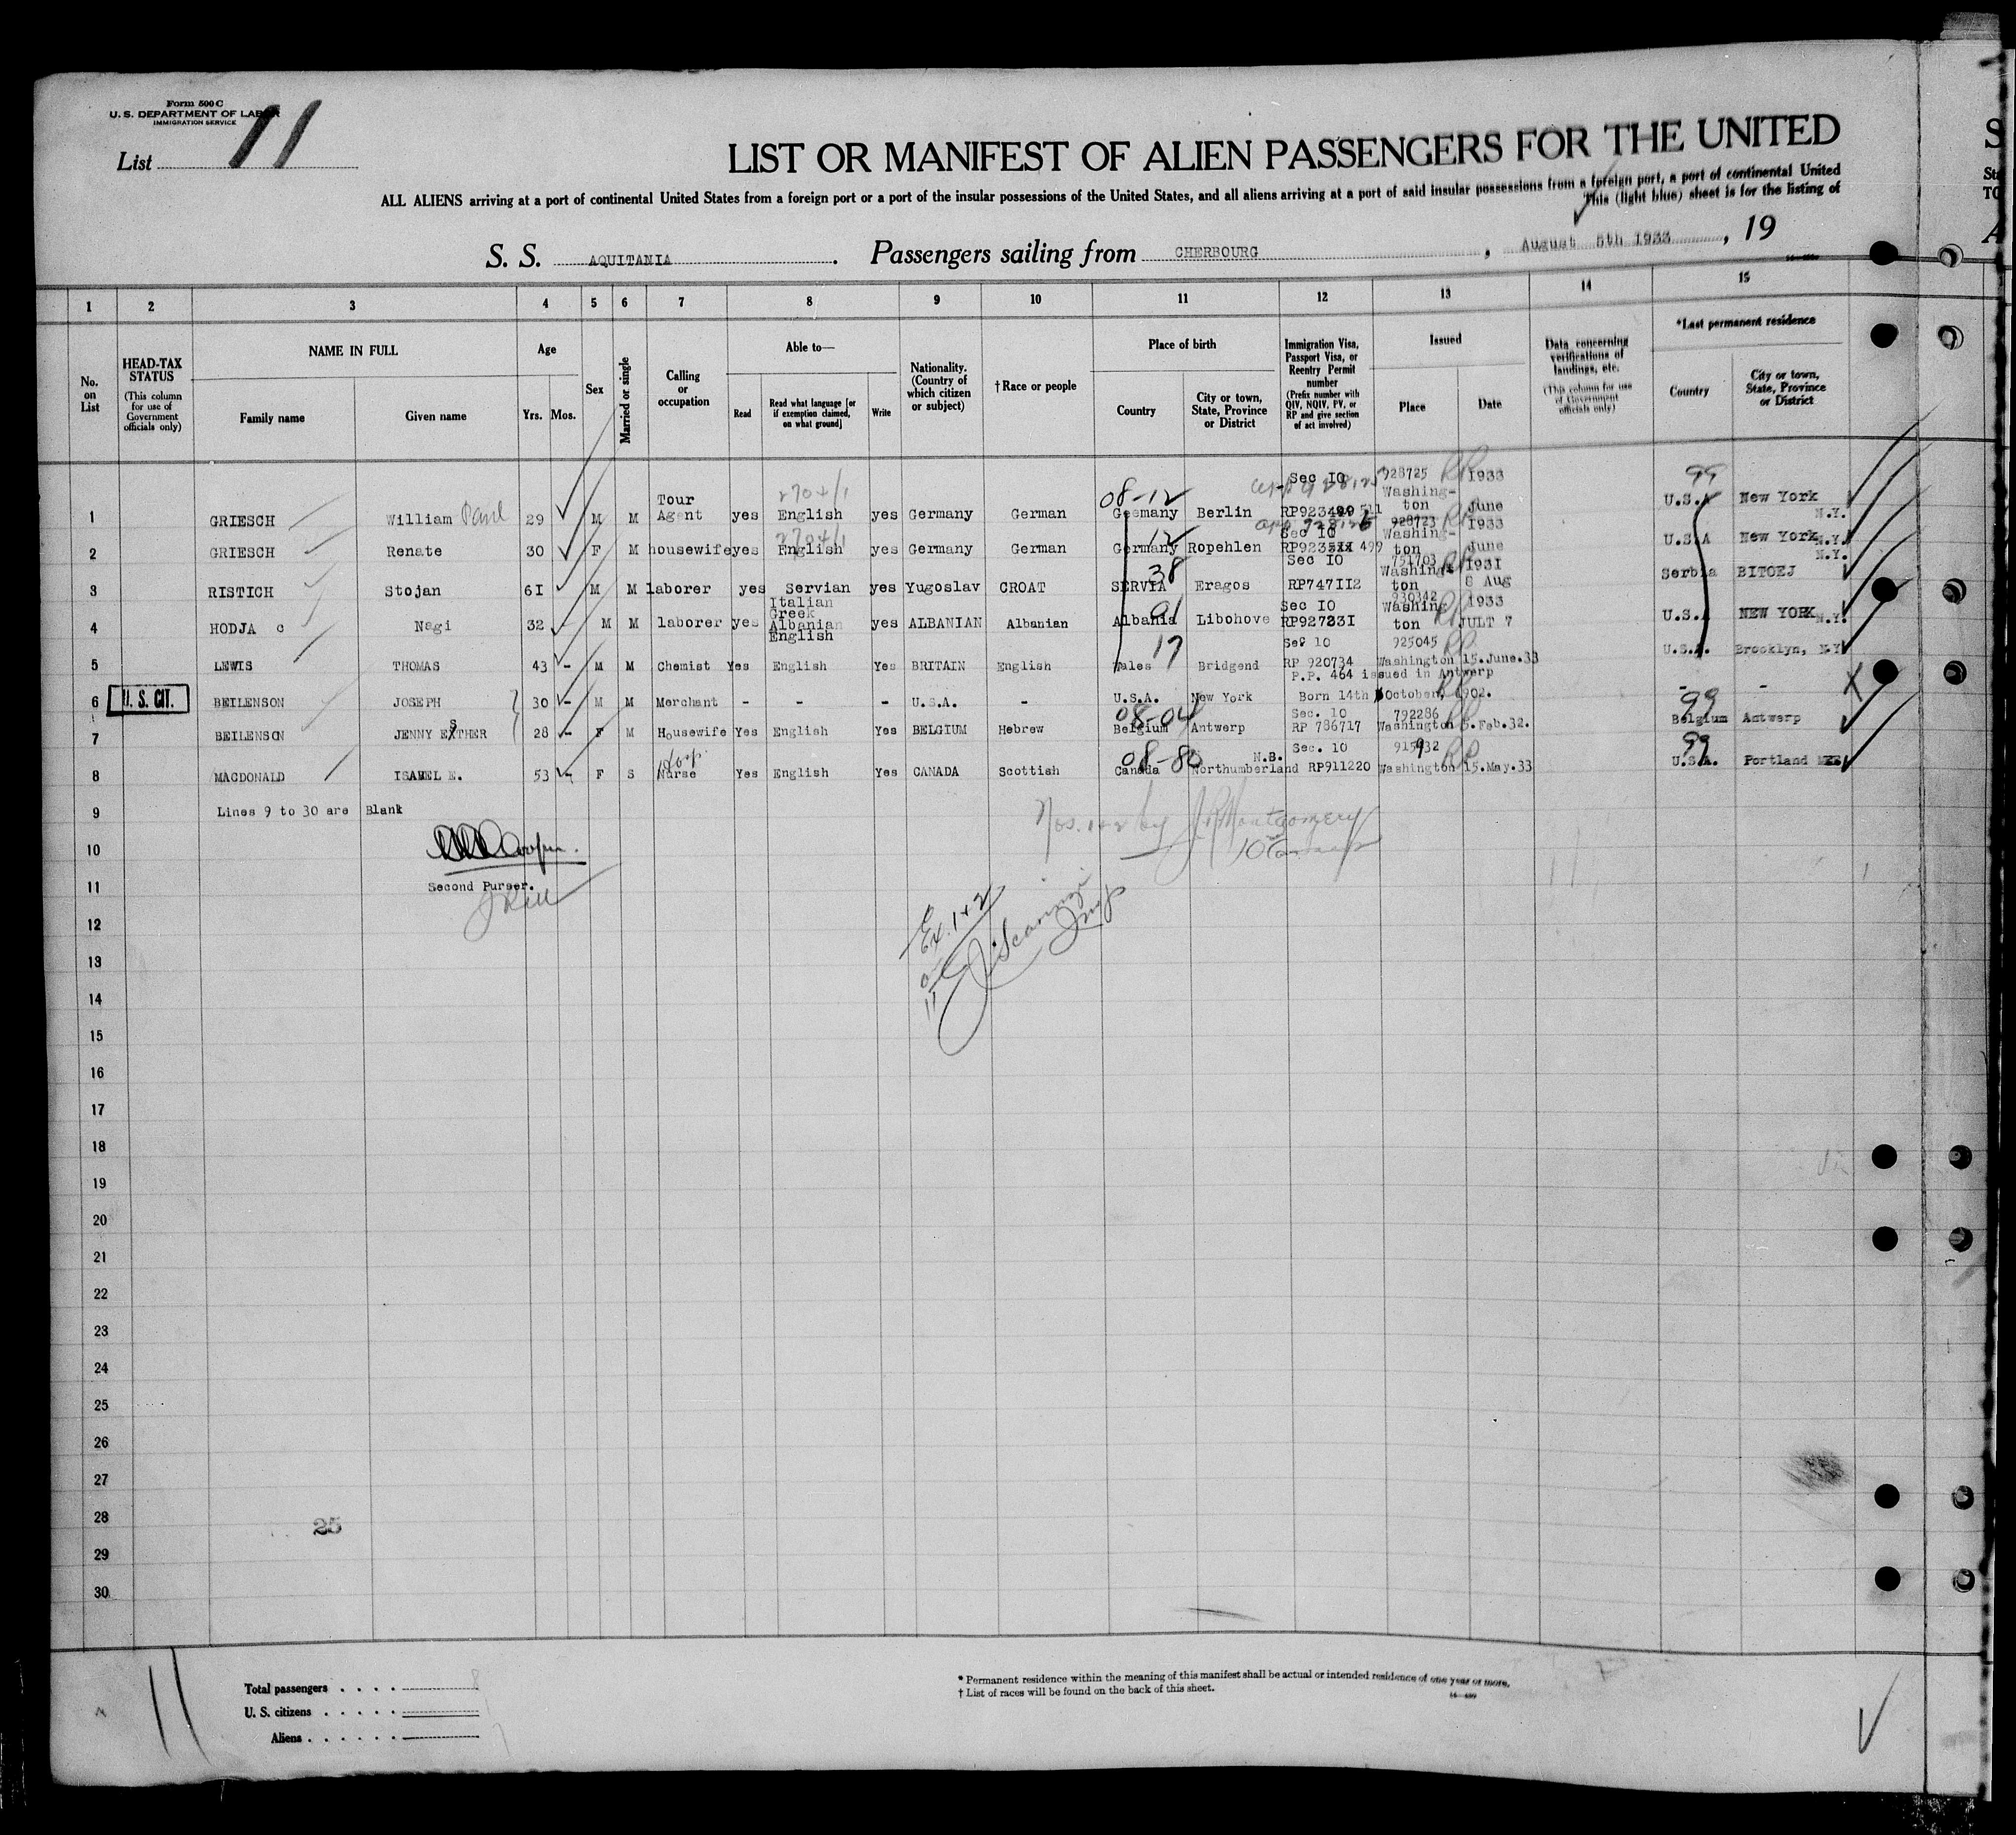 Form 500 C
U. S. DEPARTMENT OF LABOR
IMMIGRATION SERVICE
List 11
LIST OR MANIFEST OF ALIEN PASSENGERS FOR THE UNITED
ALL ALIENS arriving at a port of continental United States from a foreign port or a port of the insular possessions of the United States, and all aliens arriving at a port of said insular possessions from a foreign port, a port of continental United
This (light blue) sheet is for the listing of
S. S. AQUITANIA. Passengers sailing from CHERBOURG, August 5th 1933, 19
1 2 3 4 5 6 7 8 9 10 11 12 13 14 15
No. on List
HEAD-TAX STATUS (This column for use of Government officials only)
NAME IN FULL
Family name
Given name
Age
Yrs. Mos.
Sex
Married or single
Calling or occupation
Able to—
Read
Read what language [or if exemption claimed, on what ground]
Write
Nationality. (Country of which citizen or subject)
†Race or people
Place of birth
Country
City or town, State, Province or District
Immigration Visa, Passport Visa, or Reentry Permit number (Prefix number with QIV, NQIV, PV, or RP and give section of act involved)
Issued
Place
Date
Data concerning verifications of landings, etc. (This column for use of Government officials only)
*Last permanent residence
Country
City or town, State, Province or District
1 GRIESCH William Paul 29 M M Tour Agent yes English yes Germany German Geemany Berlin Sec IO 928725 Washington 1933 June U.S.A New York N.Y.
2 GRIESCH Renate 30 F M housewife yes English yes Germany German Germany Ropehlen Sec IO 499 928723 Washington 1933 June U.S.A New York N.Y.
3 RISTICH Stojan 6I M M laborer yes Servian yes Yugoslav CROAT SERVIA Eragos Sec IO RP747II2 751703 Washington I93I 8 Aug Serbia BITOEJ
4 HODJA c Nagi 32 M M laborer yes Italian Greek Albanian English yes ALBANIAN Albanian Albania Libohove Sec IO 930342 Washington 1933 JULT 7 U.S.A NEW YORK N.Y.
5 LEWIS THOMAS 43 - M M Chemist Yes English Yes BRITAIN English Wales Bridgend Sef 10 RP 920734 925045 Washington 15.June.33 U.S.A. Brooklyn, N.Y
P.P. 464 issued in Antwerp
6 U. S. CIT. BEILENSON JOSEPH 30 - M M Merchant - - - U.S.A. - U.S.A. New York Born 14th October, 1902. - -
7 BEILENSON JENNY ESTHER 28 - F M Housewife Yes English Yes BELGIUM Hebrew Belgium Antwerp Sec. 10 RP 786717 792286 Washington 5.Feb.32. Belgium Antwerp
8 MACDONALD ISABEL E. 53 - F S Nurse Yes English Yes CANADA Scottish Canada N.B. Northumberland Sec. 10 RP911220 Washington 15.May.33 U.S.A. Portland
9 Lines 9 to 30 are Blank
10
Second Purser.
11
12
13
14
15
16
17
18
19
20
21
22
23
24
25
26
27
28 25
29
30
11
Total passengers
U. S. citizens
Aliens
* Permanent residence within the meaning of this manifest shall be actual or intended residence of one year or more.
† List of races will be found on the back of this sheet.